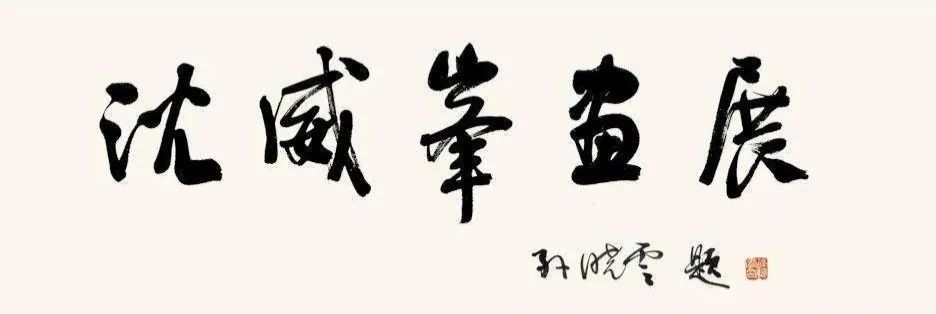 沈威峯画展
孙晓云 题